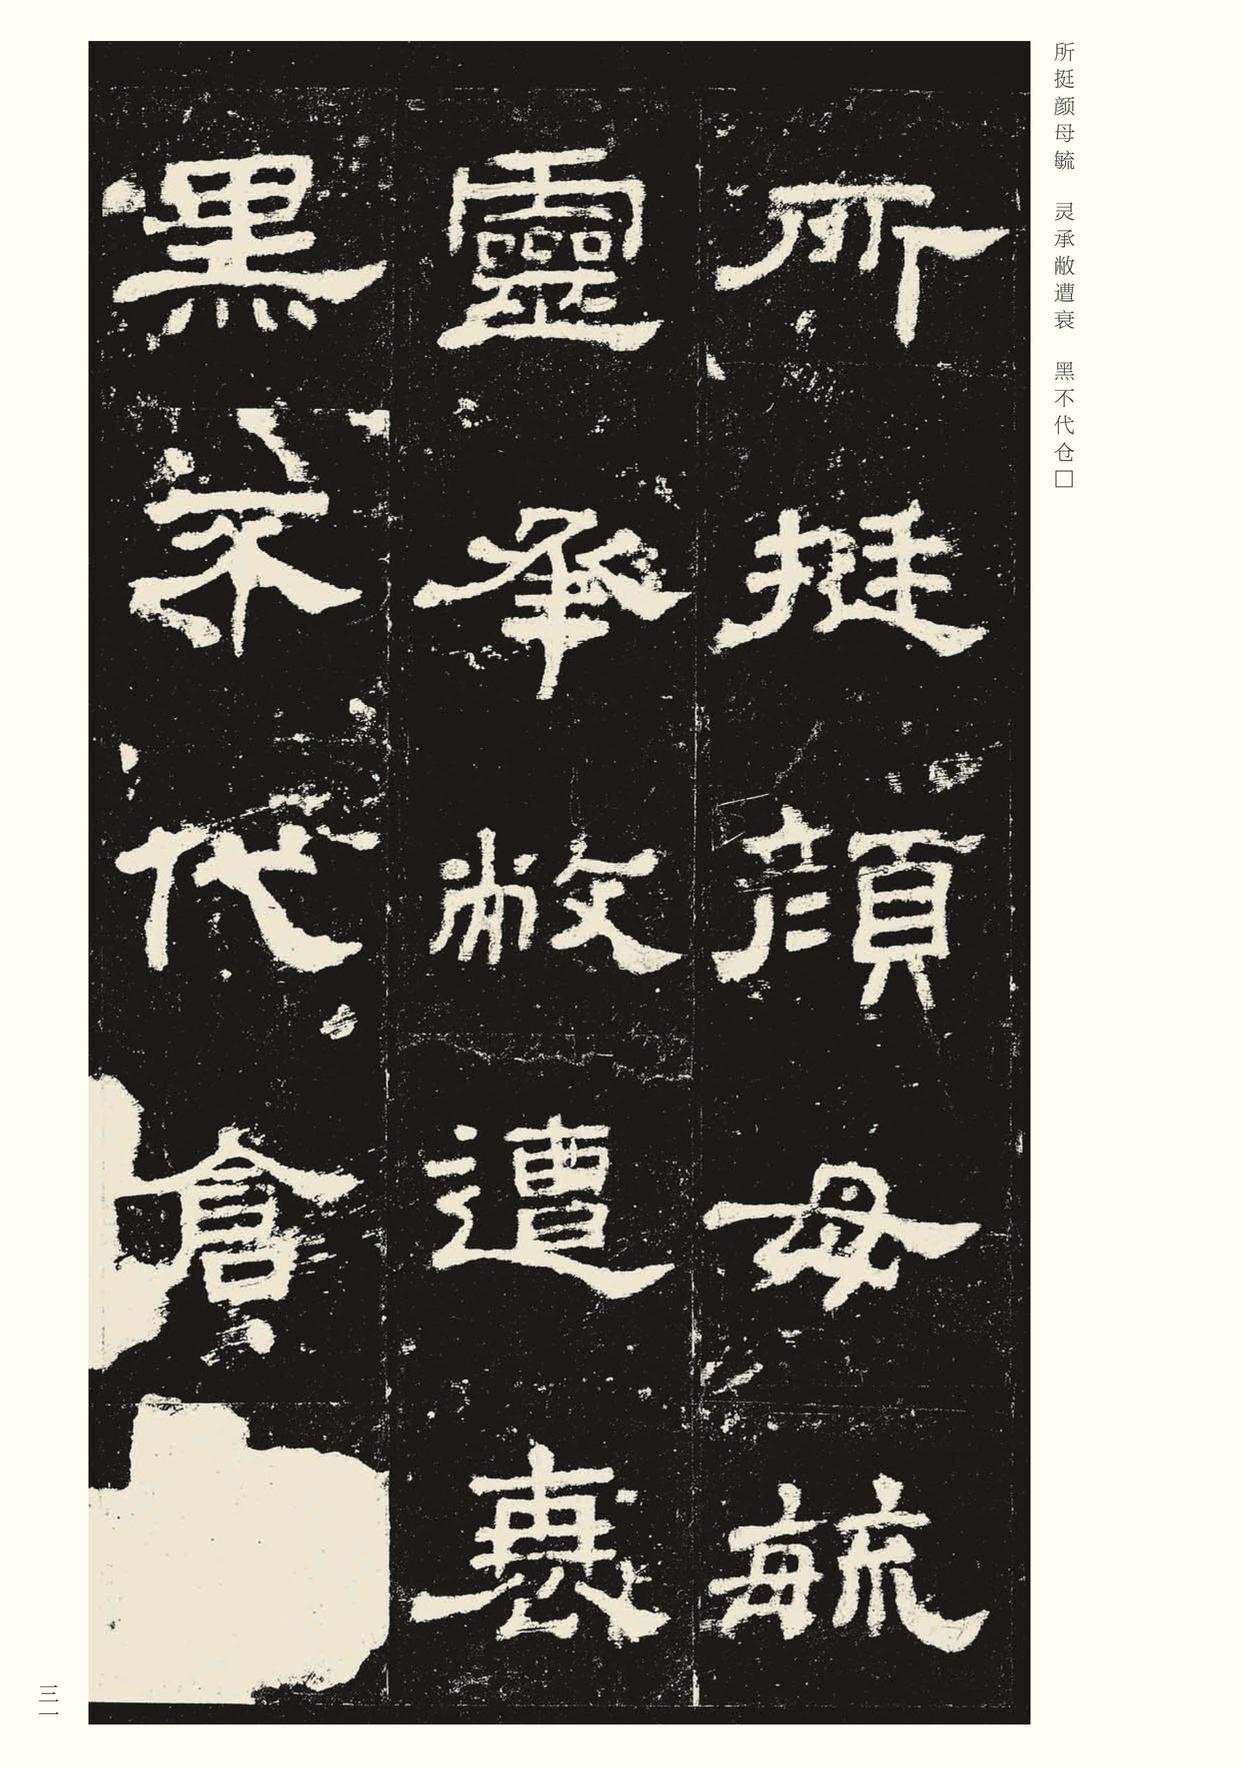 所挺颜母毓　灵承敝遭衰　黑不代仓□
所挺顔母毓
靈承敝遭衰
黑不代倉
三一